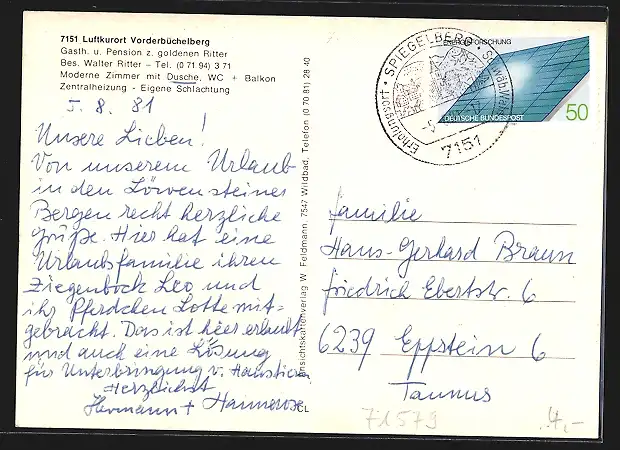 7151 Luftkurort Vorderbüchelberg
Gasth. u. Pension z. goldenen Ritter
Bes. Walter Ritter – Tel. (0 71 94) 3 71
Moderne Zimmer mit Dusche, WC + Balkon
Zentralheizung - Eigene Schlachtung
5. 8. 81
Unsere Lieben!
Von unserem Urlaub
in den Löwensteiner
Bergen recht herzliche
Grüße. Hier hat eine
Urlaubsfamilie ihren
Ziegenbock Leo und
ihr Pferdchen Lotte mit-
gebracht. Das ist hier erlaubt
und auch eine Lösung
für Unterbringung v. Haustieren
Herzlichst
Hermann + Hannerose
Ansichtskartenverlag W. Feldmann, 7547 Wildbad, Telefon (0 70 81) 28 40
CL
Erholungsort · SPIEGELBERG · Schwäb. Wald
7151
ENERGIEFORSCHUNG
DEUTSCHE BUNDESPOST
50
Familie
Hans-Gerhard Braun
Friedrich Ebertstr. 6
6239 Eppstein 6
Taunus
71579
4,-